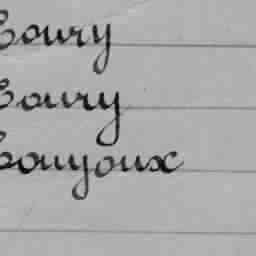 Coury
Coury
Coujoux